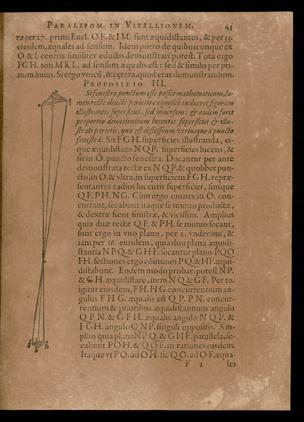 PARALIPOM. IN VITELLIONEM. 43
27. primi Eucl. OF. & IM. sunt æquidistantes, & per 33.
eiusdem, æquales ad sensum. Idem puero de quibuscunque ex
O & I. centris similiter eductis demonstrari potest. Tota ergo
FGH. orn MKL. ad sensum æqualis est: sed & similis per pri-
mam huius. Si ergo & cætera, quod erat demonstrandum.
PROPOSITIO III.
Si fenestra punctum esse posset mathematicum, lu-
men recte obiecti parietis exquisite induceret figuram
illustrantis superficiei, sed inuersam: & eadem foret
proportio diametrorum lucentis superficiei & illu-
strati parietis, quæ est distantiarum vtriusque à puncto
fenestræ. Sit FGH. superficies illustranda, ei-
que æquidistans NQP. superficies lucens, &
sit in O. punctum fenestræ. Ducantur per ante
demonstrata rectæ ex NQP. & quolibet pun-
cto, in O. & vltra, in superficiem FGH. repræ-
sentantes radios lucentis superficiei, sintque
QF. PH. NG. Cùm ergo omnes in O. con-
currant, secabunt itaque se mutuo productæ,
& dextræ fient sinistræ, & vicissim. Amplius
quia duæ rectæ QF. & PH. se mutuo secant,
sunt ergo in vno plano, per 2. vndecimi, &
iam per 16. eiusdem, quia duo plana æquidi-
stantia NPQ. & GHF. secantur plano PQO
FH. sectiones ergo communes PQ & HF. æqui-
distabunt. Eodem modo probari potest NP.
& GH. æquidistare, item NQ & GF. Per 10.
igitur eiusdem, FH. HG. concurrentium an-
gulus FHG. æqualis est QPN. concur-
rentium & prioribus æquidistantium angulo
QPN. & GFH. æqualis angulo NQP. &
FGH. angulo QNP. singuli oppositis. Am-
plius quia plana NPQ. & GHF. parallela, se-
cabunt POH. & QOF. in rationes easdem.
Itaque vt PO. ad OH. sic QO. ad OF. æqua-
F 2 les